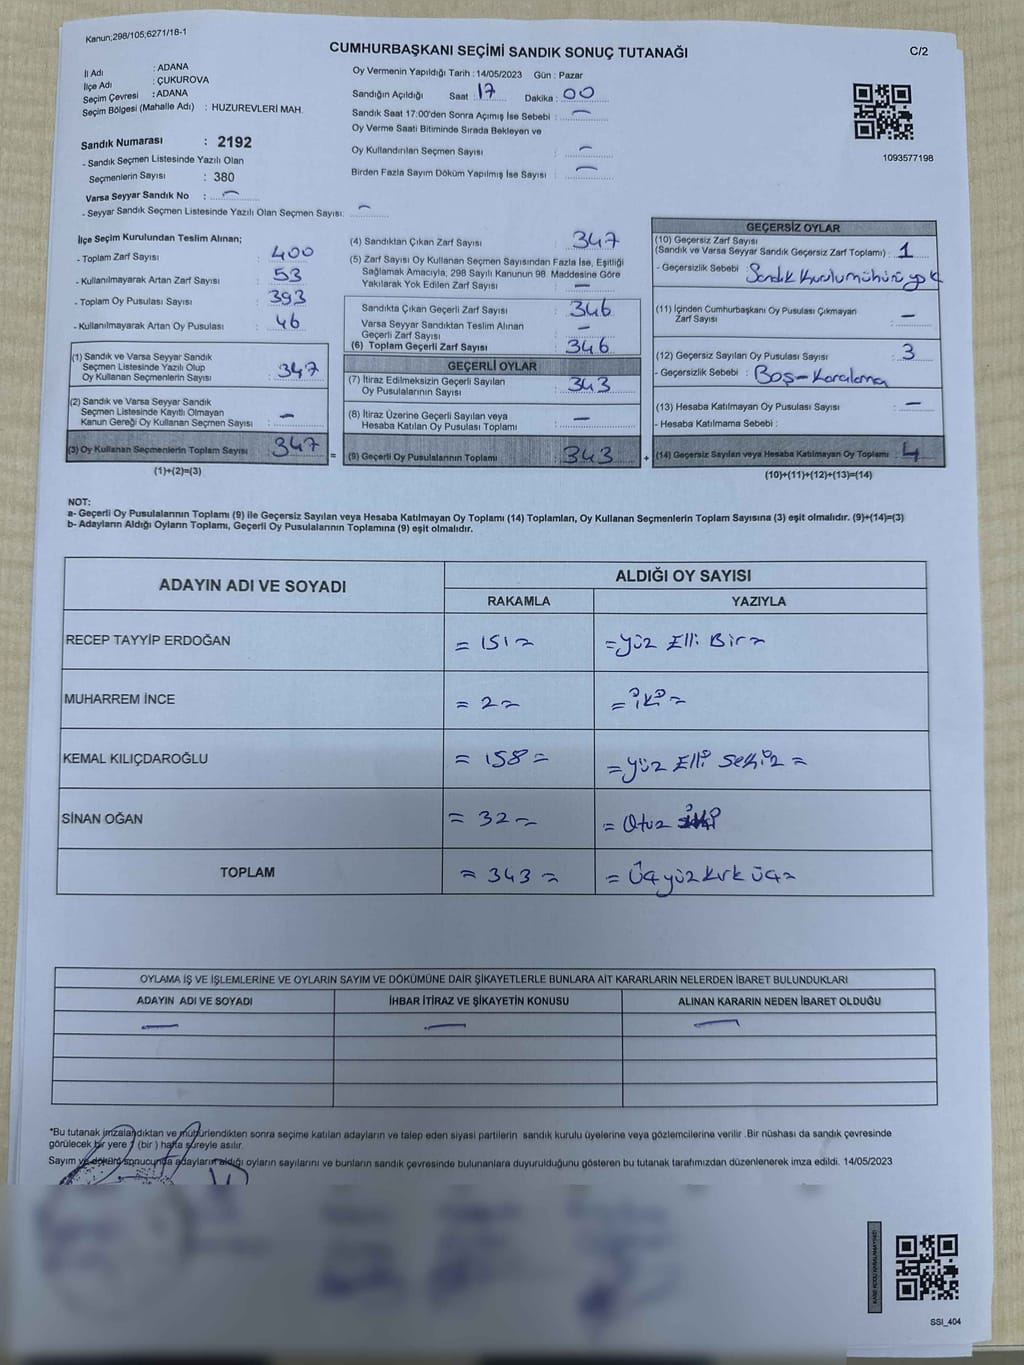 Kanun;298/105;6271/18-1
CUMHURBAŞKANI SEÇİMİ SANDIK SONUÇ TUTANAĞI
C/2
İl Adı : ADANA
İlçe Adı : ÇUKUROVA
Seçim Çevresi : ADANA
Seçim Bölgesi (Mahalle Adı) : HUZUREVLERİ MAH.
Sandık Numarası : 2192
- Sandık Seçmen Listesinde Yazılı Olan
Seçmenlerin Sayısı : 380
Varsa Seyyar Sandık No : —
- Seyyar Sandık Seçmen Listesinde Yazılı Olan Seçmen Sayısı: —
Oy Vermenin Yapıldığı Tarih : 14/05/2023 Gün : Pazar
Sandığın Açıldığı Saat : 17 Dakika : 00
Sandık Saat 17:00'den Sonra Açımış İse Sebebi : —
Oy Verme Saati Bitiminde Sırada Bekleyen ve
Oy Kullandırılan Seçmen Sayısı : —
Birden Fazla Sayım Döküm Yapılmış İse Sayısı : —
1093577198
İlçe Seçim Kurulundan Teslim Alınan;
- Toplam Zarf Sayısı : 400
- Kullanılmayarak Artan Zarf Sayısı : 53
- Toplam Oy Pusulası Sayısı : 393
- Kullanılmayarak Artan Oy Pusulası : 46
(1) Sandık ve Varsa Seyyar Sandık
Seçmen Listesinde Yazılı Olup
Oy Kullanan Seçmenlerin Sayısı : 347
(2) Sandık ve Varsa Seyyar Sandık
Seçmen Listesinde Kayıtlı Olmayan
Kanun Gereği Oy Kullanan Seçmen Sayısı : —
(3) Oy Kullanan Seçmenlerin Toplam Sayısı : 347
(1)+(2)=(3)
=
(4) Sandıktan Çıkan Zarf Sayısı : 347
(5) Zarf Sayısı Oy Kullanan Seçmen Sayısından Fazla İse, Eşitliği
Sağlamak Amacıyla, 298 Sayılı Kanunun 98. Maddesine Göre
Yakılarak Yok Edilen Zarf Sayısı : —
Sandıkta Çıkan Geçerli Zarf Sayısı : 346
Varsa Seyyar Sandıktan Teslim Alınan
Geçerli Zarf Sayısı : —
(6) Toplam Geçerli Zarf Sayısı : 346
GEÇERLİ OYLAR
(7) İtiraz Edilmeksizin Geçerli Sayılan
Oy Pusulalarının Sayısı : 343
(8) İtiraz Üzerine Geçerli Sayılan veya
Hesaba Katılan Oy Pusulası Toplamı : —
(9) Geçerli Oy Pusulalarının Toplamı : 343
+
GEÇERSİZ OYLAR
(10) Geçersiz Zarf Sayısı
(Sandık ve Varsa Seyyar Sandık Geçersiz Zarf Toplamı) : 1
- Geçersizlik Sebebi : Sandık Kurulu mührü yok
(11) İçinden Cumhurbaşkanı Oy Pusulası Çıkmayan
Zarf Sayısı : —
(12) Geçersiz Sayılan Oy Pusulası Sayısı : 3
- Geçersizlik Sebebi : Boş-Karalama
(13) Hesaba Katılmayan Oy Pusulası Sayısı : —
- Hesaba Katılmama Sebebi :
(14) Geçersiz Sayılan veya Hesaba Katılmayan Oy Toplamı : 4
(10)+(11)+(12)+(13)=(14)
NOT:
a- Geçerli Oy Pusulalarının Toplamı (9) ile Geçersiz Sayılan veya Hesaba Katılmayan Oy Toplamı (14) Toplamları, Oy Kullanan Seçmenlerin Toplam Sayısına (3) eşit olmalıdır. (9)+(14)=(3)
b- Adayların Aldığı Oyların Toplamı, Geçerli Oy Pusulalarının Toplamına (9) eşit olmalıdır.
ADAYIN ADI VE SOYADI ALDIĞI OY SAYISI
RAKAMLA YAZIYLA
RECEP TAYYİP ERDOĞAN = 151 = = Yüz Elli Bir =
MUHARREM İNCE = 2 = = İki =
KEMAL KILIÇDAROĞLU = 158 = = Yüz Elli Sekiz =
SİNAN OĞAN = 32 = = Otuz iki
TOPLAM = 343 = = Üçyüz Kırk üç =
OYLAMA İŞ VE İŞLEMLERİNE VE OYLARIN SAYIM VE DÖKÜMÜNE DAİR ŞİKAYETLERLE BUNLARA AİT KARARLARIN NELERDEN İBARET BULUNDUKLARI
ADAYIN ADI VE SOYADI İHBAR İTİRAZ VE ŞİKAYETİN KONUSU ALINAN KARARIN NEDEN İBARET OLDUĞU
— — —
*Bu tutanak imzalandıktan ve mühürlendikten sonra seçime katılan adayların ve talep eden siyasi partilerin sandık kurulu üyelerine veya gözlemcilerine verilir .Bir nüshası da sandık çevresinde
görülecek bir yere 1 (bir ) hafta süreyle asılır.
Sayım ve dökme sonucunda adayların aldığı oyların sayılarını ve bunların sandık çevresinde bulunanlara duyurulduğunu gösteren bu tutanak tarafımızdan düzenlenerek imza edildi. 14/05/2023
SSİ_404